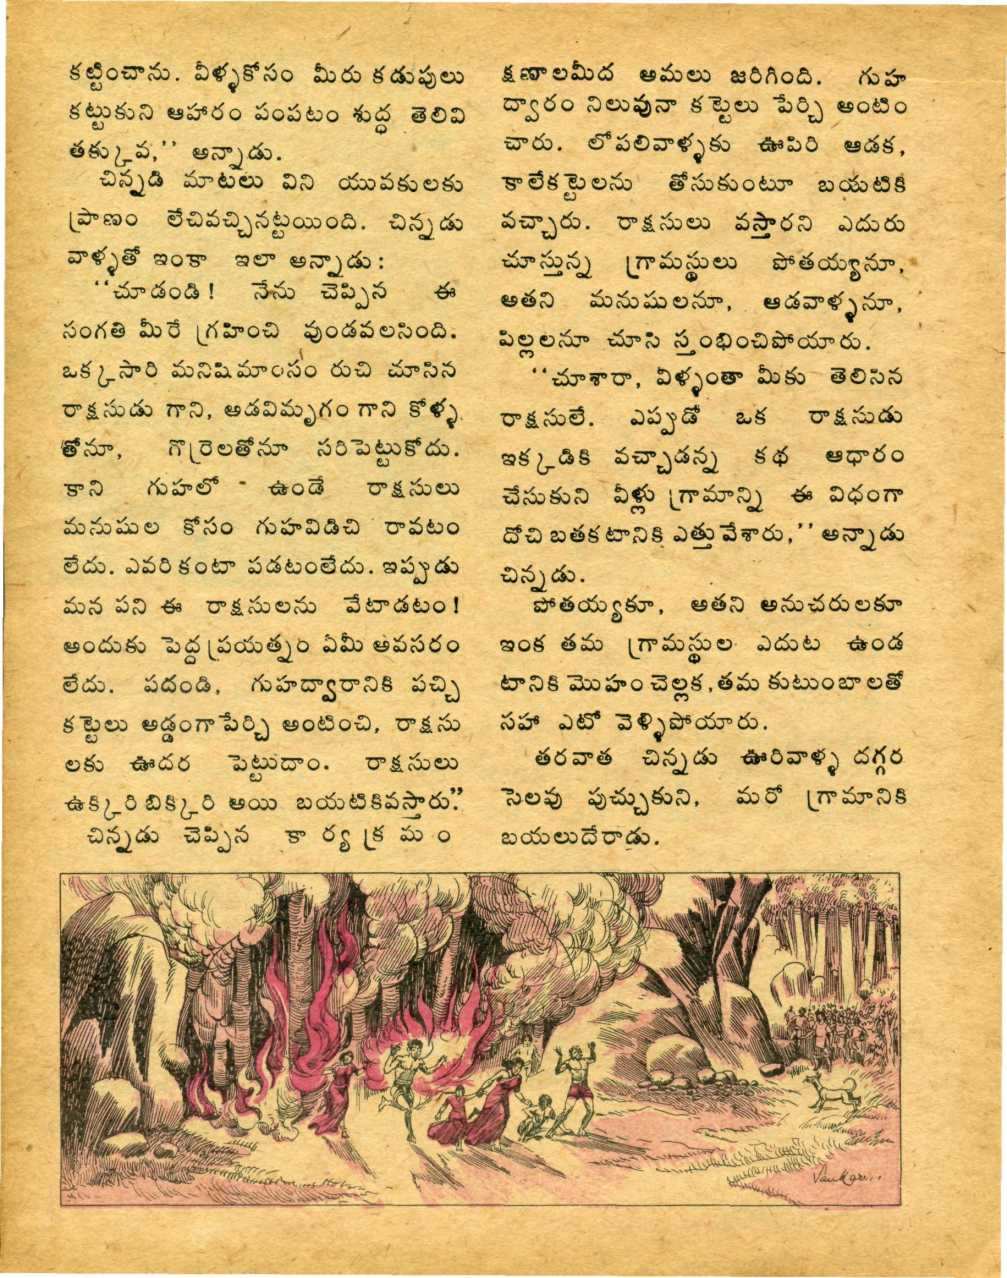 కట్టించాను. వీళ్ళకోసం మీరు కడుపులు
కట్టుకుని ఆహారం పంపటం శుద్ధ తెలివి
తక్కువ,'' అన్నాడు.
చిన్నడి మాటలు విని యువకులకు
ప్రాణం లేచివచ్చినట్టయింది. చిన్నడు
వాళ్ళతో ఇంకా ఇలా అన్నాడు:
‘‘చూడండి! నేను చెప్పిన ఈ
సంగతి మీరే గ్రహించి వుండవలసింది.
ఒక్కసారి మనిషిమాంసం రుచి చూసిన
రాక్షసుడు గాని, అడవిమృగం గాని కోళ్ళ
తోనూ, గొర్రెలతోనూ సరిపెట్టుకోదు.
కాని గుహలో ఉండే రాక్షసులు
మనుషుల కోసం గుహవిడిచి రావటం
లేదు. ఎవరికంటా పడటంలేదు. ఇప్పుడు
మన పని ఈ రాక్షసులను వేటాడటం!
అందుకు పెద్ద ప్రయత్నం ఏమీ అవసరం
లేదు. పదండి, గుహద్వారానికి పచ్చి
కట్టెలు అడ్డంగా పేర్చి అంటించి, రాక్షసు
లకు ఊదర పెట్టుదాం. రాక్షసులు
ఉక్కిరిబిక్కిరి అయి బయటికివస్తారు.”
చిన్నడు చెప్పిన కార్యక్రమం
క్షణాలమీద అమలు జరిగింది. గుహ
ద్వారం నిలువునా కట్టెలు పేర్చి అంటిం
చారు. లోపలివాళ్ళకు ఊపిరి ఆడక,
కాలేకట్టెలను తోసుకుంటూ బయటికి
వచ్చారు. రాక్షసులు వస్తారని ఎదురు
చూస్తున్న గ్రామస్థులు పోతయ్యనూ,
అతని మనుషులనూ, ఆడవాళ్ళనూ,
పిల్లలనూ చూసి స్తంభించిపోయారు.
‘‘చూశారా, వీళ్ళంతా మీకు తెలిసిన
రాక్షసులే. ఎప్పుడో ఒక రాక్షసుడు
ఇక్కడికి వచ్చాడన్న కథ ఆధారం
చేసుకుని వీళ్లు గ్రామాన్ని ఈ విధంగా
దోచి బతకటానికి ఎత్తువేశారు,'' అన్నాడు
చిన్నడు.
పోతయ్యకూ, అతని అనుచరులకూ
ఇంక తమ గ్రామస్థుల ఎదుట ఉండ
టానికి మొహం చెల్లక, తమ కుటుంబాలతో
సహా ఎటో వెళ్ళిపోయారు.
తరవాత చిన్నడు ఊరివాళ్ళ దగ్గర
సెలవు పుచ్చుకుని, మరో గ్రామానికి
బయలుదేరాడు.